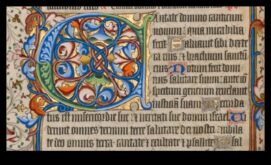 Cantate domino canticum
nouum quia mirabilia
Saluauit sibi dexte
ra et brachium sanctum
eius Notum fecit domi
nus salutare suum: ante con
spectum gentium reuelauit
iusticiam suam Recorda
tus est misericordie sue et ueritati sue domui israel
Viderunt omnes termini terre salutare dei nostri Iubila
te deo omnis terra: cantate et exultate et psallite